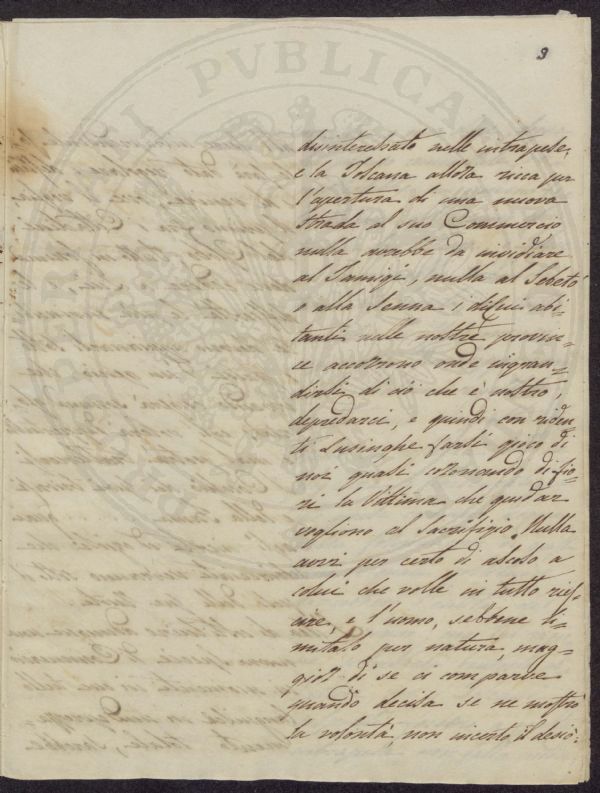 3
disinteressato nelle intraprese;
e la Toscana allora ricca per
l'apertura di una nuova
strada al suo Commercio
nulla avrebbe da invidiare
al Tamigi, nulla al Sebeto
o alla Senna i di cui abi-
tanti nelle nostre provin-
ce accorrono onde ingran-
dirsi di ciò che è nostro,
depredarci, e quindi con riden-
ti lusinghe farsi gioco di
noi quasi coronando di fio-
ri la Vittima che guidar
vogliono al Sacrifizio. Nulla
avvi per certo di ascoso a
colui che volle in tutto ries-
cire, e l'uomo, sebbene li-
mitato per natura, mag-
gior di se ci comparve
quando decisa se ne mostrò
la volontà, non incerto il desio.
PVBLICA